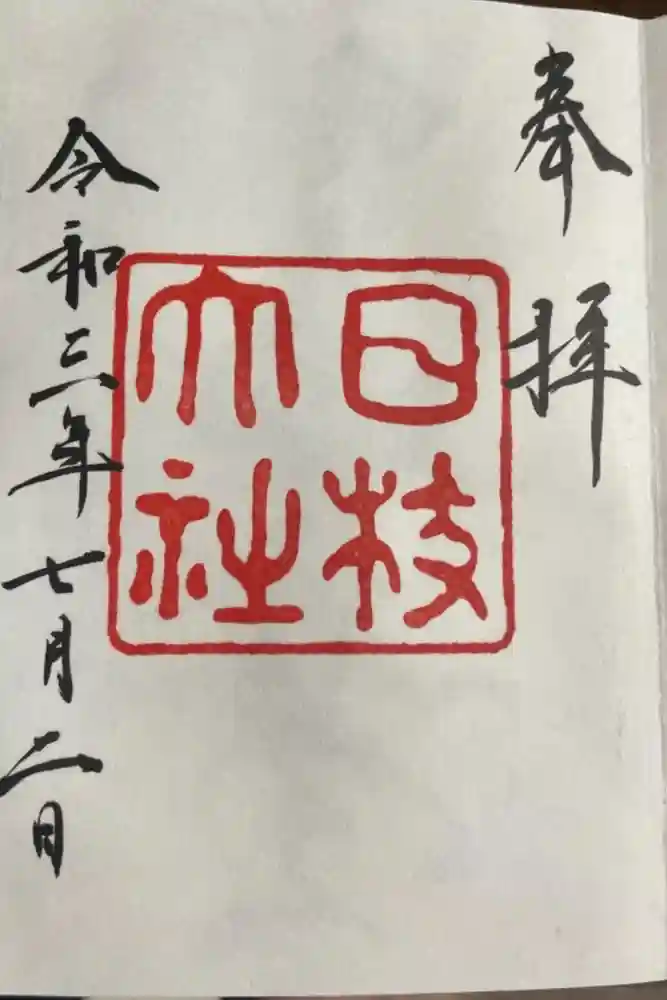 奉拝
日枝
大社
令和三年七月二日